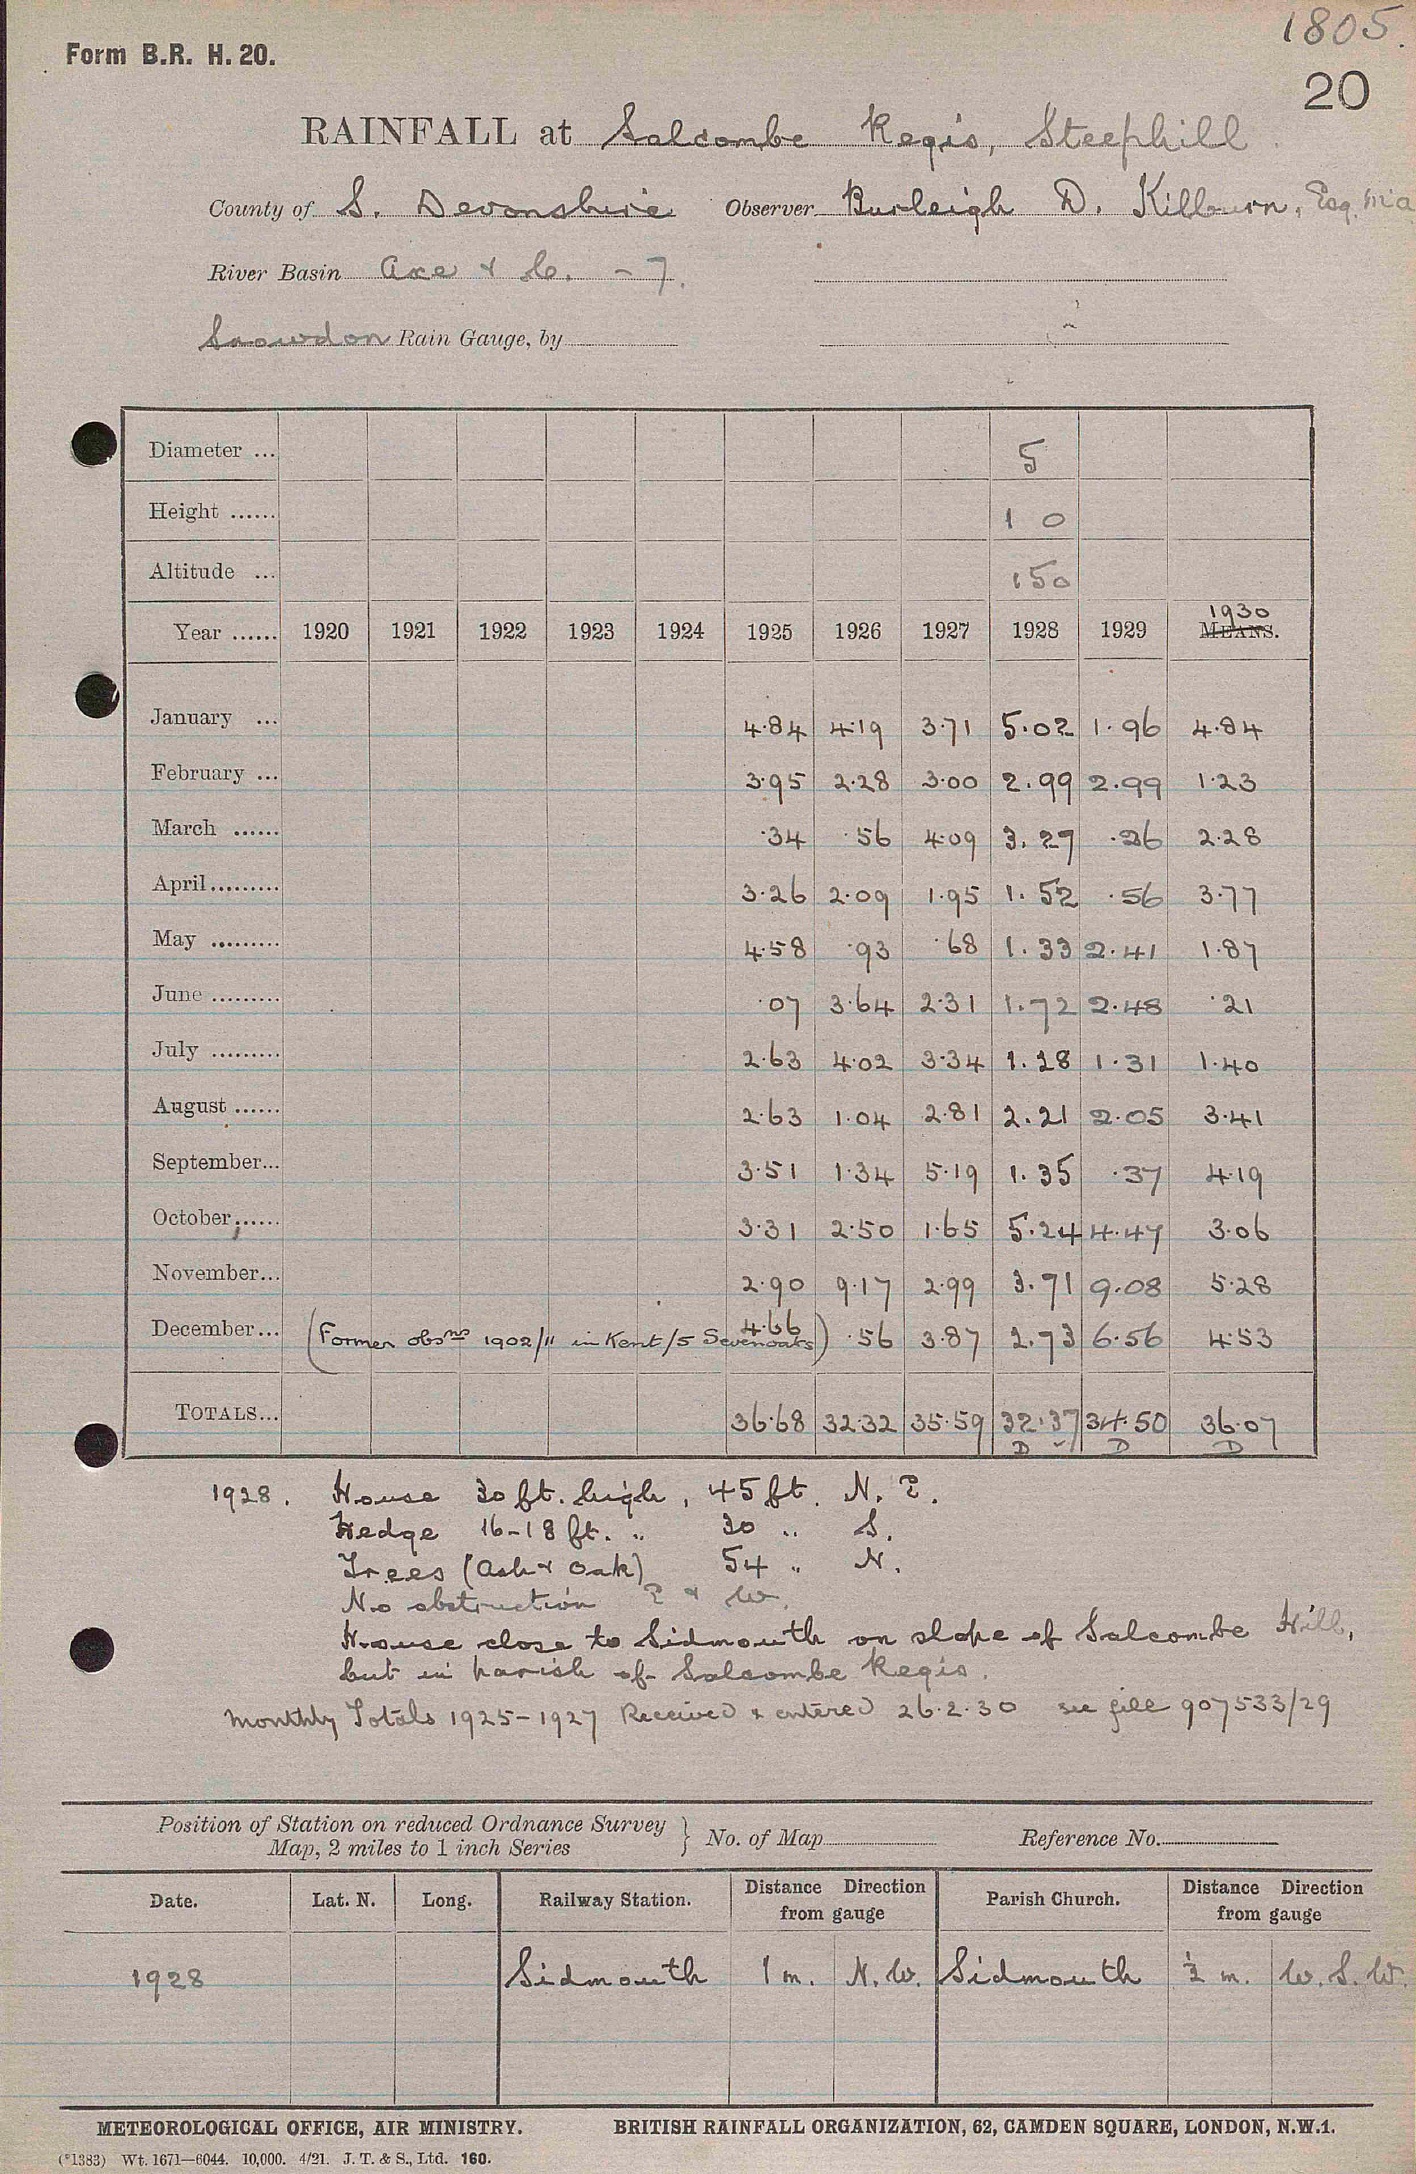 1805.
Form B.R. H. 20.
20
RAINFALL at Salcombe Regis, Steephill.
County of S. Devonshire Observer Burleigh D. Kilburn, Esq. M.A
River Basin Axe & C. - 7.
Snowdon Rain Gauge, by
Diameter ... 5
Height ...... 1 0
Altitude ... 150
Year ...... 1920 1921 1922 1923 1924 1925 1926 1927 1928 1929 1930 MEANS.
January ... 4.84 4.19 3.71 5.02 1.96 4.84
February ... 3.95 2.28 3.00 2.99 2.99 1.23
March ...... .34 .56 4.09 3.27 .26 2.28
April ......... 3.26 2.09 1.95 1.52 .56 3.77
May ......... 4.58 .93 .68 1.33 2.41 1.87
June ......... .07 3.64 2.31 1.72 2.48 .21
July ......... 2.63 4.02 3.34 1.28 1.31 1.40
August ...... 2.63 1.04 2.81 2.21 2.05 3.41
September ... 3.51 1.34 5.19 1.35 .37 4.19
October ...... 3.31 2.50 1.65 5.24 4.47 3.06
November ... 2.90 9.17 2.99 3.71 9.08 5.28
December ... (Former obsns 1902/11 in Kent/5 Sevenoaks) 4.66 .56 3.87 2.73 6.56 4.53
TOTALS... 36.68 32.32 35.59 32.37 34.50 36.07
D D D
1928. House 30 ft. high, 45 ft. N. E.
Hedge 16-18 ft. " 30 " S.
Trees (Ash & Oak) 54 " N.
No obstruction E & W.
House close to Sidmouth on slope of Salcombe Hill,
but in parish of Salcombe Regis.
Monthly Totals 1925-1927 Received & entered 26.2.30 see file 907533/29
Position of Station on reduced Ordnance Survey
Map, 2 miles to 1 inch Series } No. of Map Reference No.
Date. Lat. N. Long. Railway Station. Distance Direction from gauge Parish Church. Distance Direction from gauge
1928 Sidmouth 1 m. N. W. Sidmouth ½ m. W. S. W.
METEOROLOGICAL OFFICE, AIR MINISTRY. BRITISH RAINFALL ORGANIZATION, 62, CAMDEN SQUARE, LONDON, N.W.1.
(*1383) Wt. 1671—6044. 10,000. 4/21. J. T. & S., Ltd. 160.